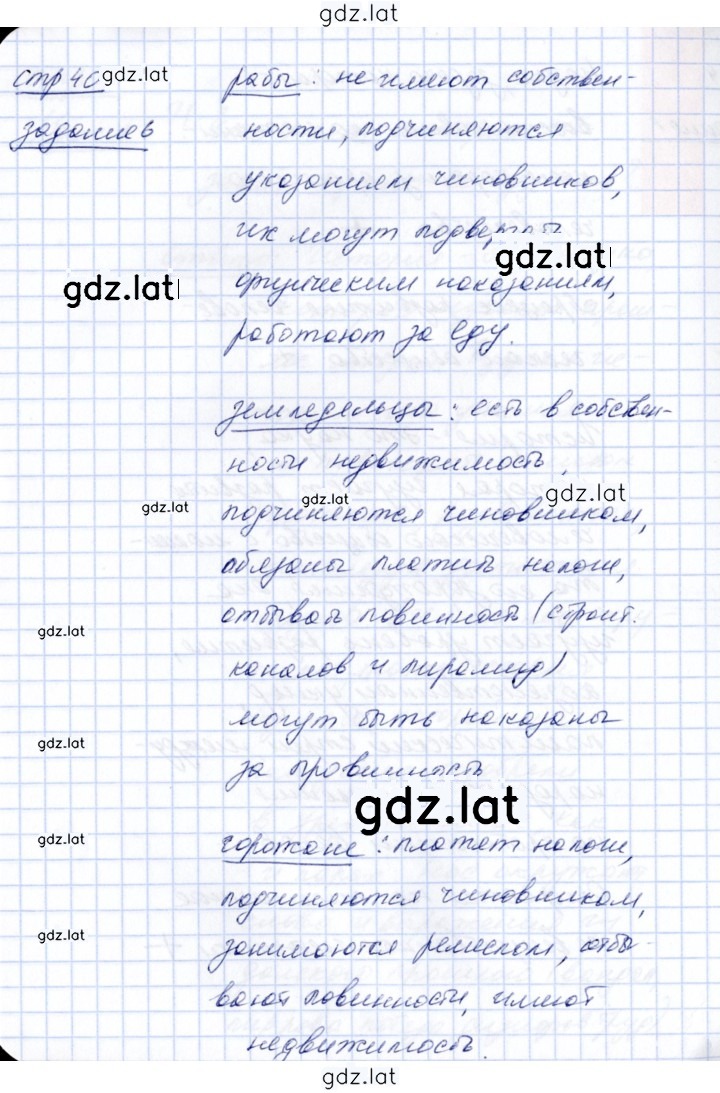 gdz.lat
стр 40 gdz.lat
рабы: не имеют собствен-
задание 6
ности, подчиняются
указаниям чиновников,
их могут подвергнуть
gdz.lat
gdz.lat
физическим наказаниям,
работают за еду.
земледельцы: есть в собствен-
ности недвижимость,
gdz.lat gdz.lat gdz.lat
подчиняются чиновникам,
обязаны платить налоги,
отбывать повинность (строит.
gdz.lat
каналов и пирамид)
могут быть наказаны
gdz.lat
за провинность
gdz.lat
горожане: платят налоги,
gdz.lat
подчиняются чиновникам,
gdz.lat
занимаются ремеслом, отбы-
вают повинности, имеют
недвижимость.
gdz.lat